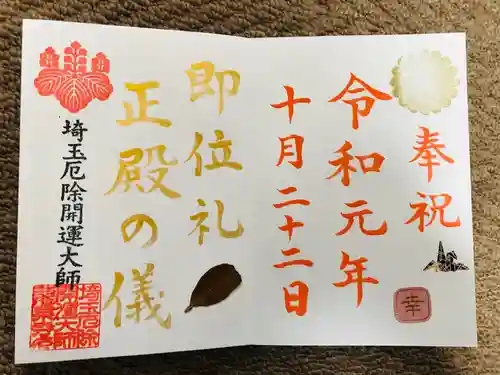 奉祝
令和元年
十月二十二日
即位礼
正殿の儀
埼玉厄除開運大師
幸
埼玉厄除
開運大師